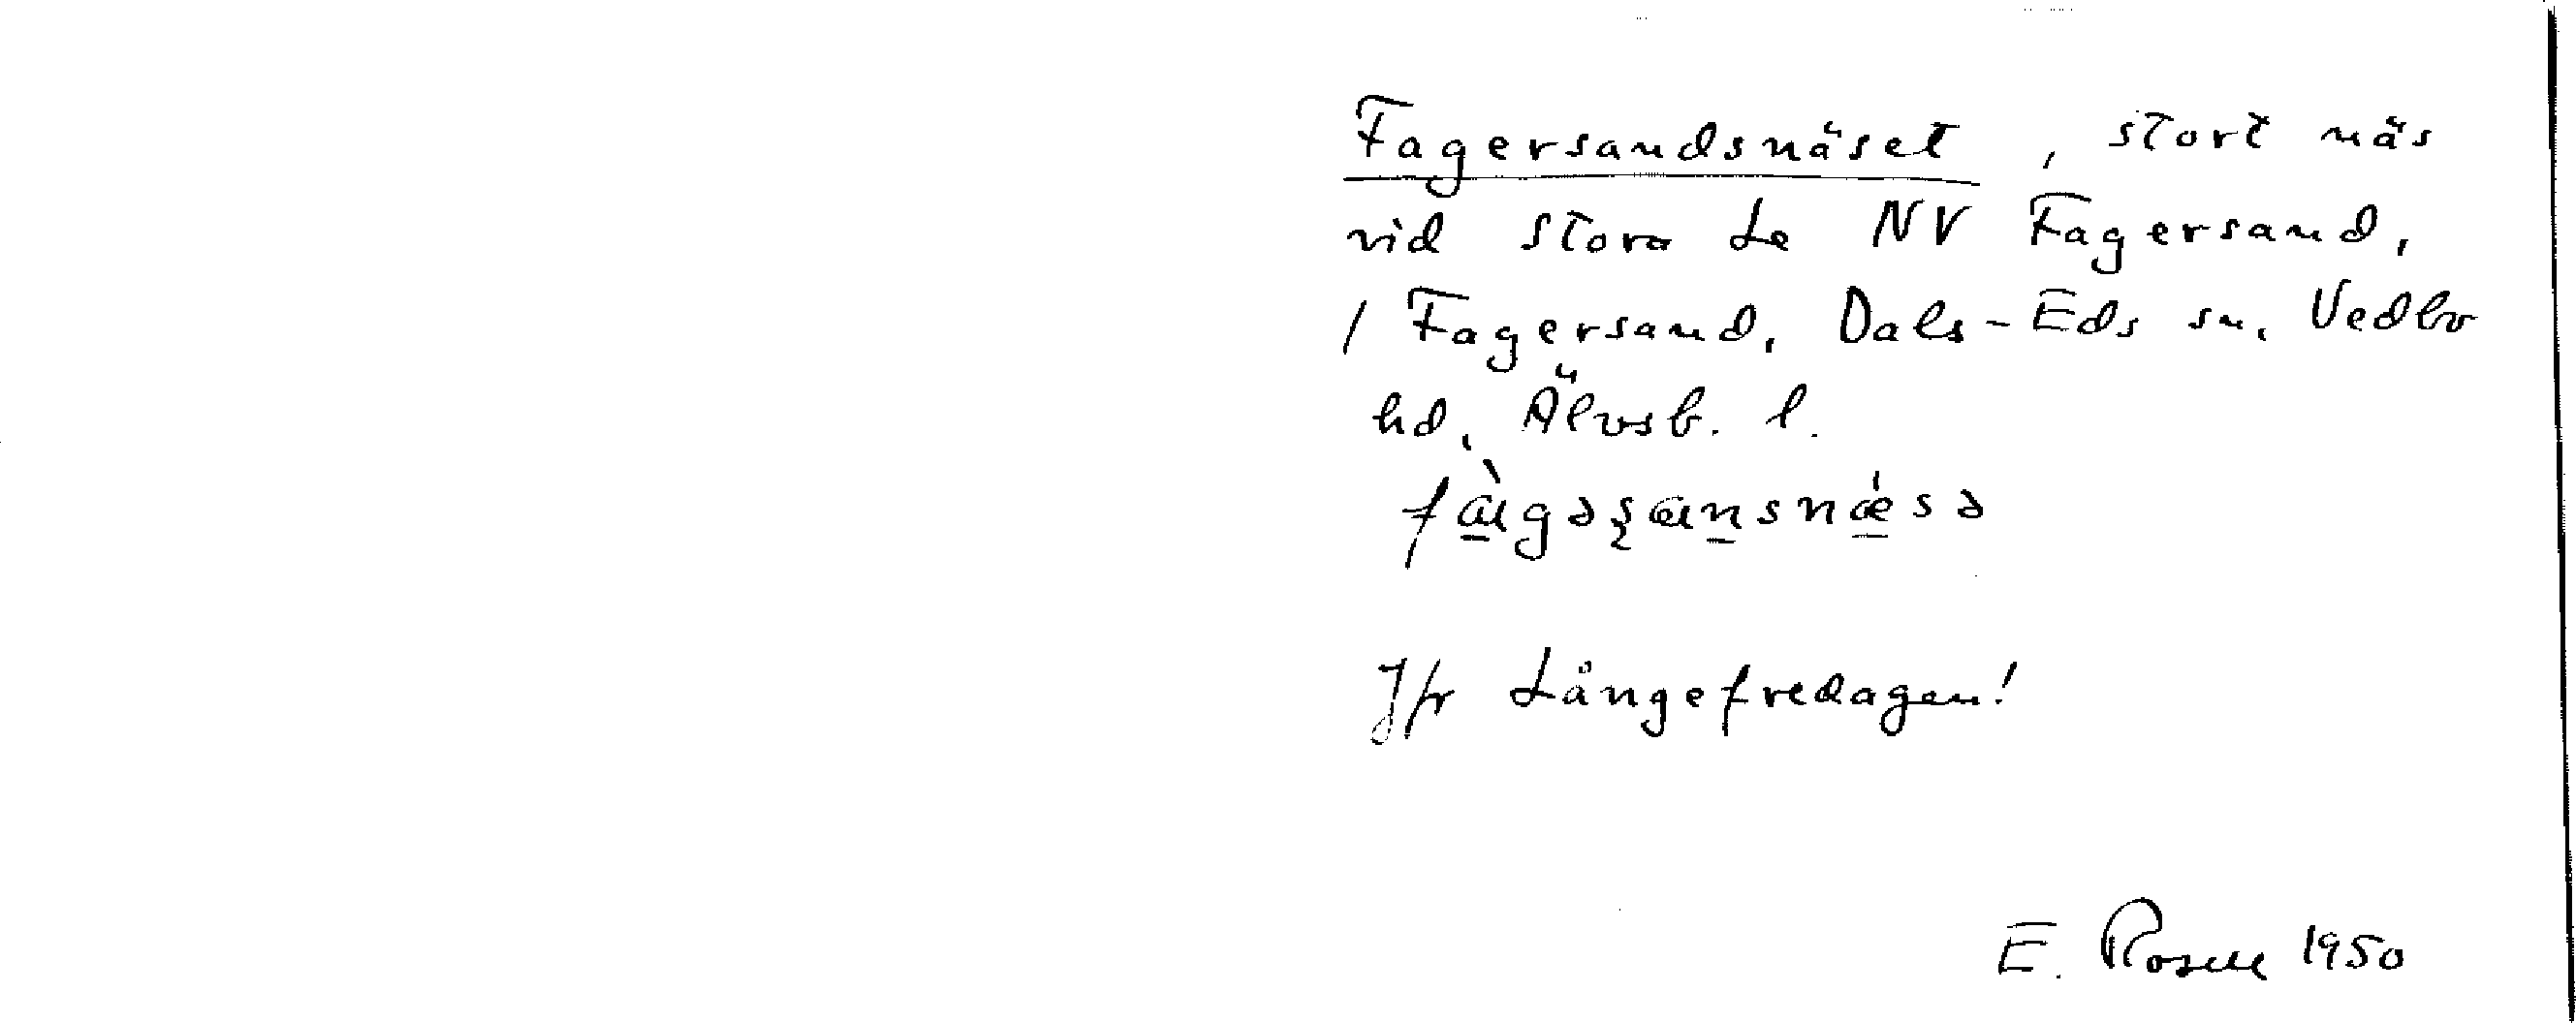 Fagersandsnäset, stort näs
vid Stora Le NV Fagersand,
/ Fagersand, Dals-Eds sn, Vedbo
hd, Älvsb. l.
fɑ̀gəʂɑnsnǽsə
Jfr Långefredagen!
E. Rosell 1950